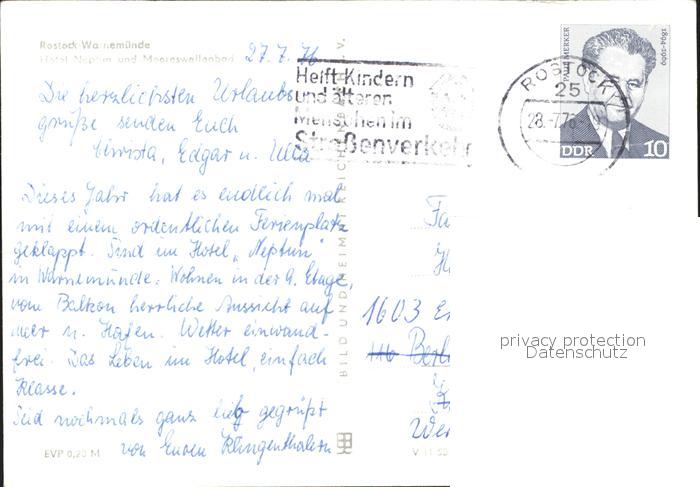 Rostock-Warnemünde
Hotel Neptun und Meereswellenbad
27.7.76
Helft Kindern
und älteren
Menschen im
Straßenverkehr
ROSTOCK
25
28.-7.76
PAUL MERKER
1894-1969
DDR 10
Die herzlichsten Urlaubs
grüße senden Euch
Christa, Edgar u. Ulla
Dieses Jahr hat es endlich mal
mit einem ordentlichen Ferienplatz
geklappt. Sind im Hotel „Neptun"
in Warnemünde. Wohnen in der 9. Etage,
vom Balkon herrliche Aussicht auf
Meer u. Hafen. Wetter einwand-
frei. Das Leben im Hotel, einfach
Klasse.
Seid nochmals ganz lieb gegrüßt
von Euren Klingenthalern
BILD UND HEIMAT REICHENBACH i. V.
Fa
1603
116 Berl
Wer
EVP 0,20 M
V 11 50
privacy protection
Datenschutz